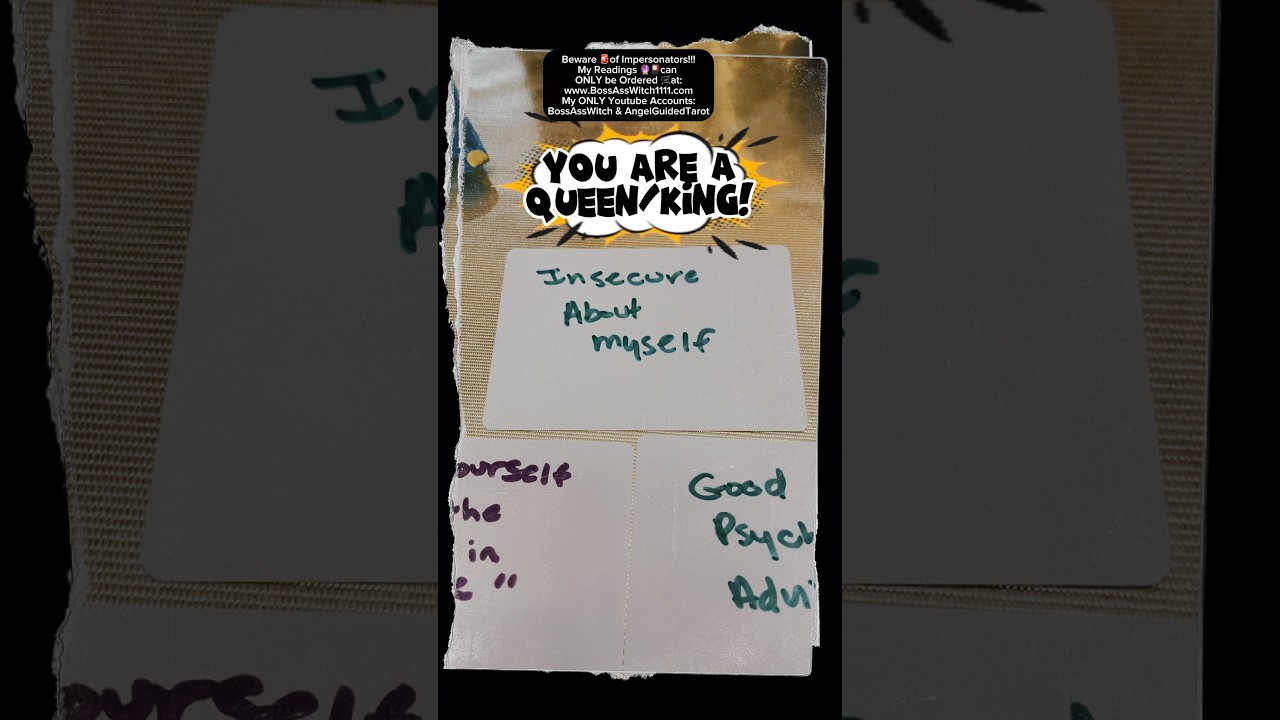 Beware 🚨of Impersonators!!!
My Readings 🔮🎴can
ONLY be Ordered 🛒at:
www.BossAssWitch1111.com
My ONLY Youtube Accounts:
BossAssWitch & AngelGuidedTarot
YOU ARE A
QUEEN/KING!
Insecure
About
myself
ourself
he
in
e"
Good
Psych
Advi